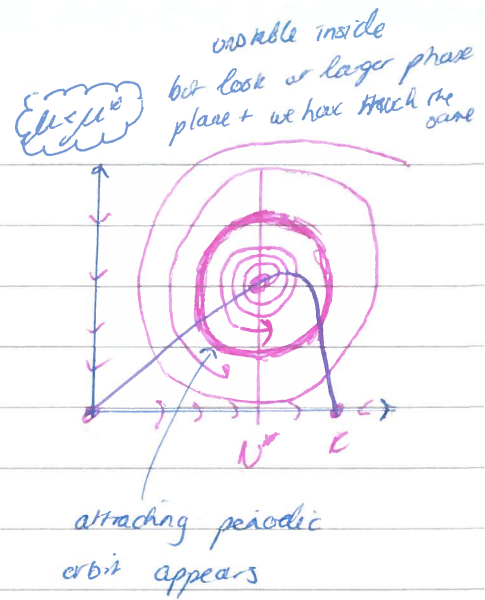 unstable inside
but look at larger phase
plane + we have much the
same
μ < μ*
N*
K
attracting periodic
orbit appears